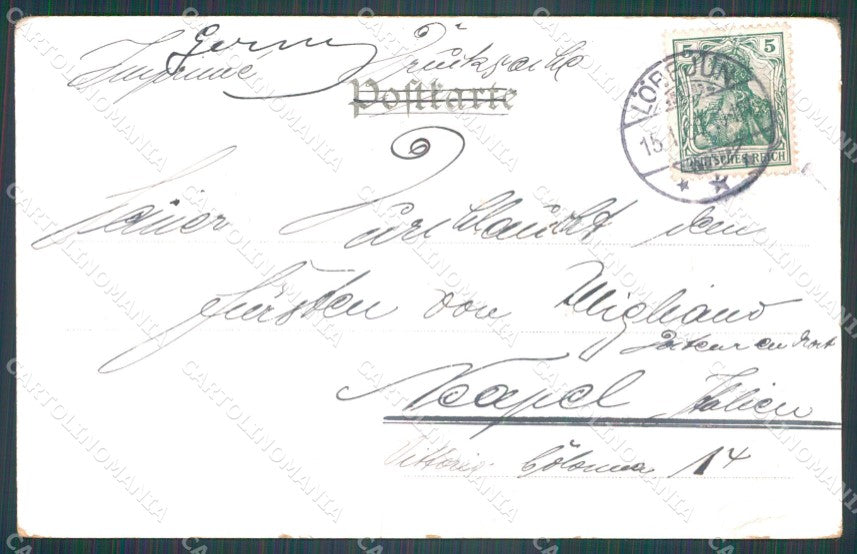 Germ
Imprimé Drucksache
Postkarte
5
LÖBEJÜN
15.1
DEUTSCHES REICH
Seiner Durchlaucht dem
Fürsten von Migliano
Neapel Italien
Vittoria Colonna 14
CARTOLINOMANIA